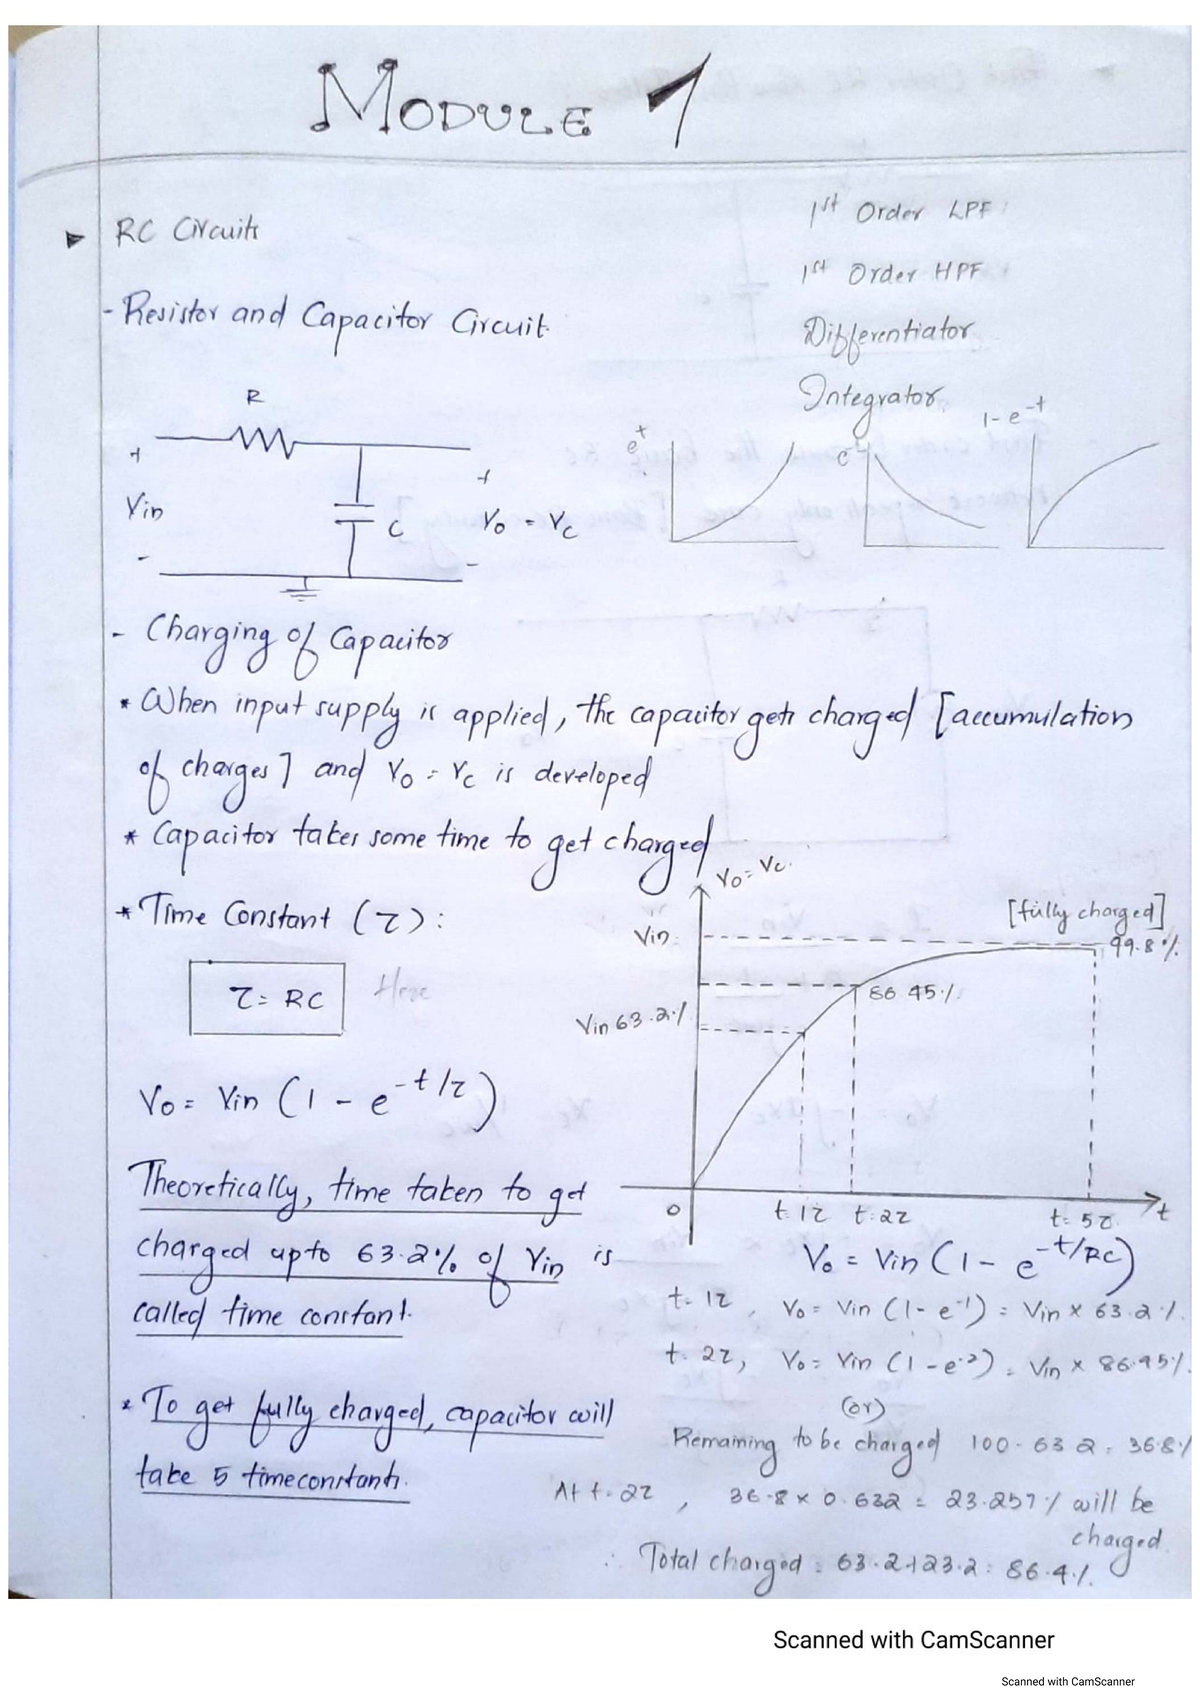 MODULE 1
▶ RC Circuits
1st Order LPF
1st Order HPF
- Resistor and Capacitor Circuit.
Differentiator
Integrator
R
+
Vin
-
C
+
Vo = Vc
-
e^t
e
1-e^-t
- Charging of Capacitor
* When input supply is applied, the capacitor gets charged [accumulation
of charges] and Vo = Vc is developed
* Capacitor takes some time to get charged
* Time Constant (τ):
τ = RC
Here
Vo = Vin (1 - e^-t/τ)
Theoretically, time taken to get
charged upto 63.2% of Vin is
called time constant.
* To get fully charged, capacitor will
take 5 timeconstants.
Vo = Vc
[fully charged]
Vin
99.8%
86.45%
Vin 63.2%
0
t=1τ
t=2τ
t=5τ
t
Vo = Vin (1 - e^-t/RC)
t=1τ, Vo = Vin (1-e^-1) = Vin × 63.2%
t=2τ, Vo = Vin (1-e^-2) = Vin × 86.45%
(or)
Remaining to be charged 100-63.2 = 36.8%
At t=2τ, 36.8 × 0.632 = 23.257% will be
charged
∴ Total charged = 63.2+23.2 = 86.4%
Scanned with CamScanner
Scanned with CamScanner